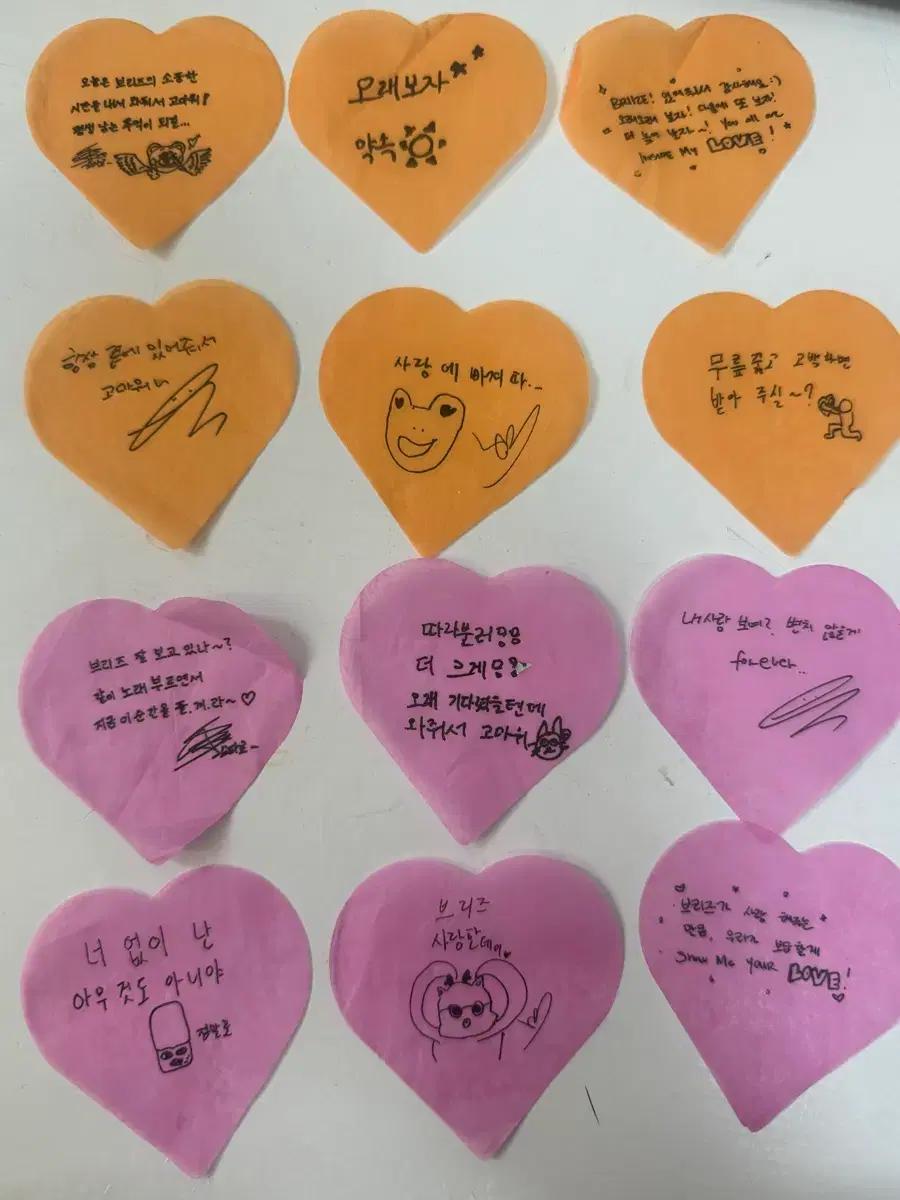 오늘은 브리즈의 소중한
시간을 내서 와줘서 고마워!
평생 남는 추억이 되길...
오래보자
약속
BRIIZE! 와줘서 감사해요:)
오래오래 보자! 다음에 또 보자!
더 놀자~! You all are
Inside My LOVE!
항상 곁에 있어줘서
고마워
사랑에 빠져따...
무릎꿇고 고백하면
받아 주실~?
브리즈 잘 보고 있나~?
같이 노래 부르면서
지금 이 순간을 즐.겨.라~♡
따라불러
더 크게
오래 기다렸을텐데
와줘서 고마워
내 사랑 변치 않을게
forever..
너 없이 난
아무 것도 아니야
브리즈
사랑한데이
브리즈가 사랑 해주는
만큼, 우리가 보답할게
Show Me Your LOVE!